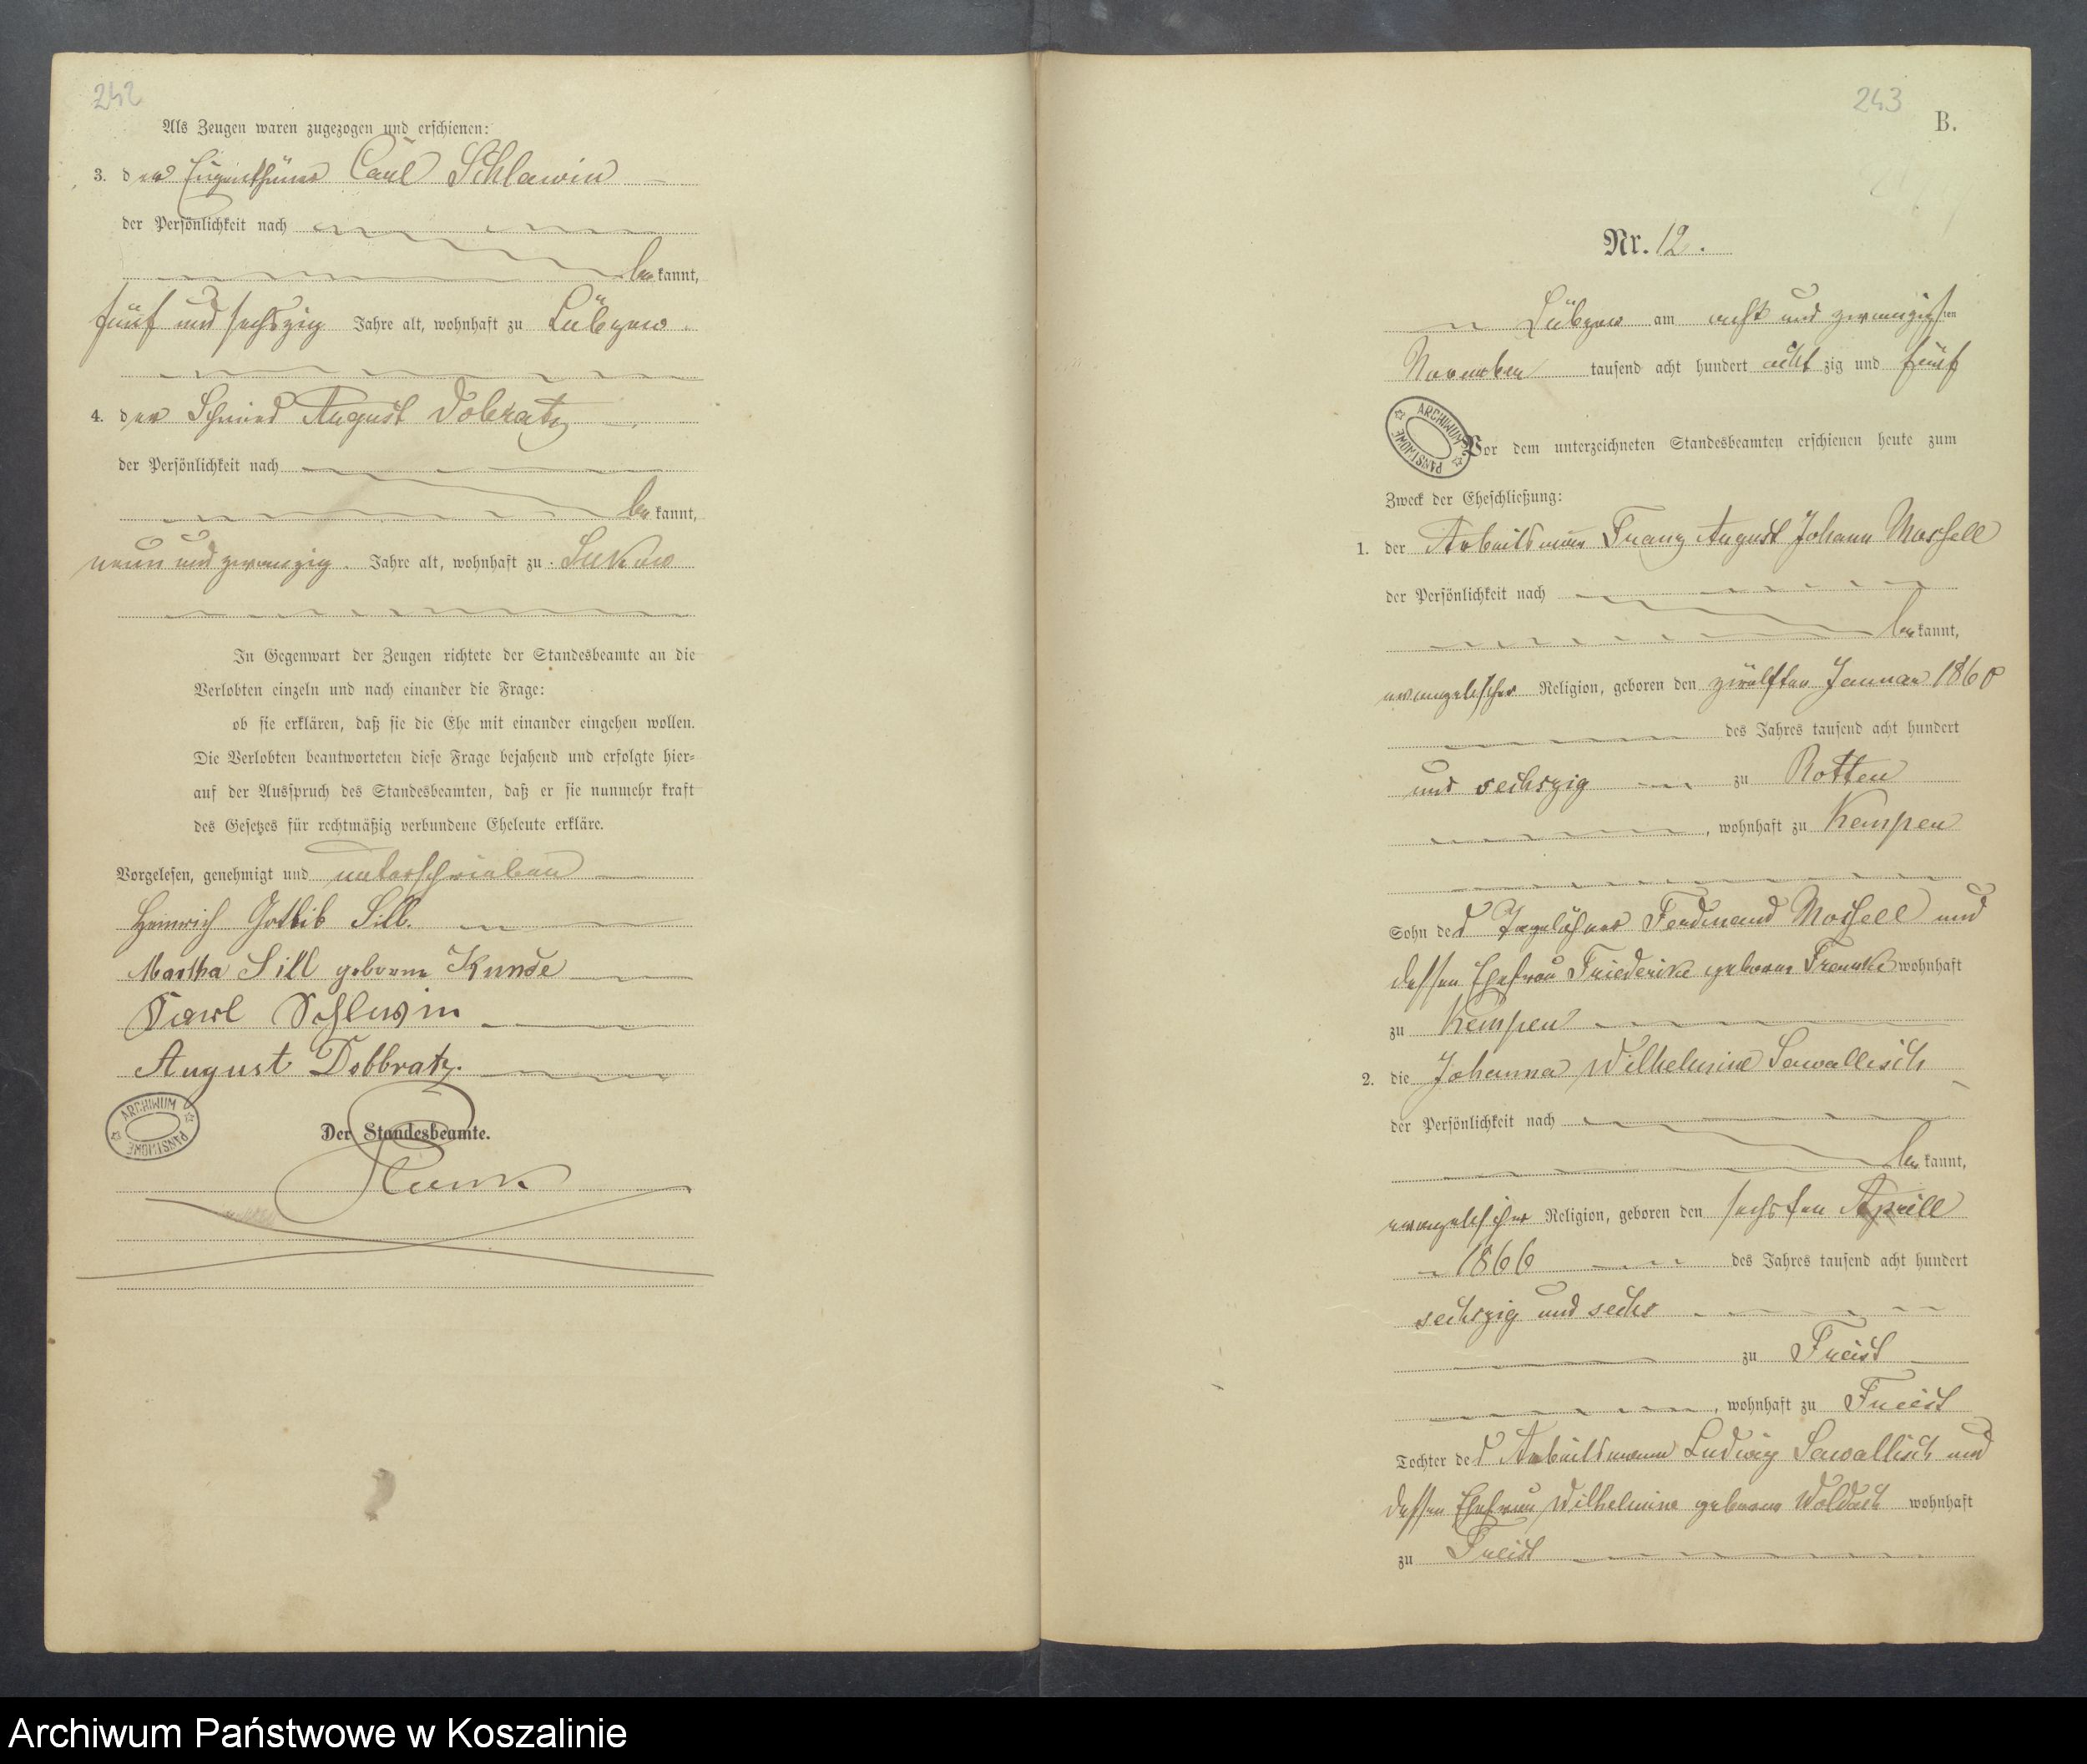 242
Als Zeugen waren zugezogen und erschienen:
3. der Eigenthümer Carl Schlawin
der Persönlichkeit nach
be kannt,
fünf und sechszig Jahre alt, wohnhaft zu Lübzow.
4. der Schmied August Dobratz
der Persönlichkeit nach
be kannt,
neun und zwanzig. Jahre alt, wohnhaft zu Lukow
In Gegenwart der Zeugen richtete der Standesbeamte an die
Verlobten einzeln und nach einander die Frage:
ob sie erklären, daß sie die Ehe mit einander eingehen wollen.
Die Verlobten beantworteten diese Frage bejahend und erfolgte hier-
auf der Ausspruch des Standesbeamten, daß er sie nunmehr kraft
des Gesetzes für rechtmäßig verbundene Eheleute erkläre.
Vorgelesen, genehmigt und unterschrieben
Heinrich Gottlib Sill.
Martha Sill geborne Kunde
Carl Schlawin
August Dobbratz.
ARCHIWUM PAŃSTWOWE
Der Standesbeamte.
243
B.
Nr. 12.
Lübzow am acht und zwanzigsten
November tausend acht hundert acht zig und fünf
ARCHIWUM PAŃSTWOWE
Vor dem unterzeichneten Standesbeamten erschienen heute zum
Zweck der Eheschließung:
1. der Arbeitsmann Franz August Johann
der Persönlichkeit nach
be kannt,
evangelischer Religion, geboren den zwölften Januar 1860
des Jahres tausend acht hundert
und sechszig zu Rotten
, wohnhaft zu Kempen
Sohn des Tagelöhners Ferdinand und
dessen Ehefrau Friederike geborne wohnhaft
zu Kempen
2. die Johanna Wilhelmine Sawallisch
der Persönlichkeit nach
be kannt,
evangelischer Religion, geboren den sechsten Aprill
1866 des Jahres tausend acht hundert
sechszig und sechs
zu Freist
, wohnhaft zu Freist
Tochter des Arbeitsmann Ludwig Sawallisch und
dessen Ehefrau Wilhelmine geborne wohnhaft
zu Freist
Archiwum Państwowe w Koszalinie